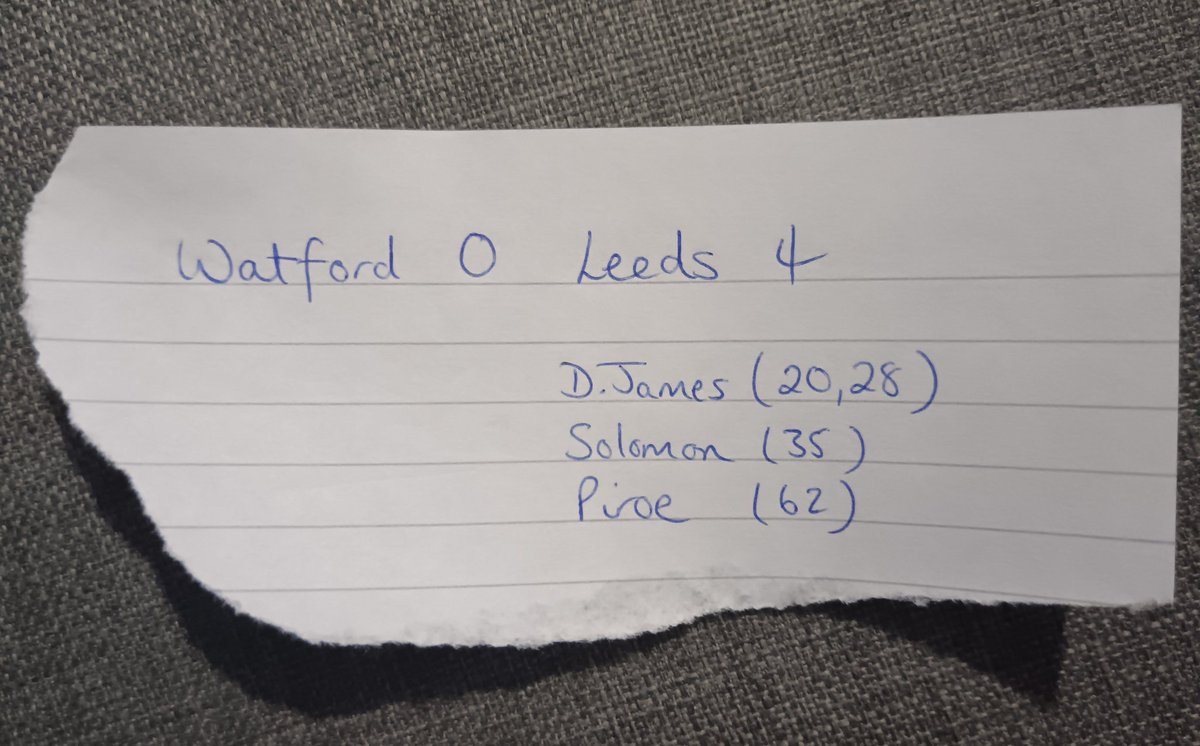 Watford 0 Leeds 4
D.James (20,28)
Solomon (35)
Piroe (62)